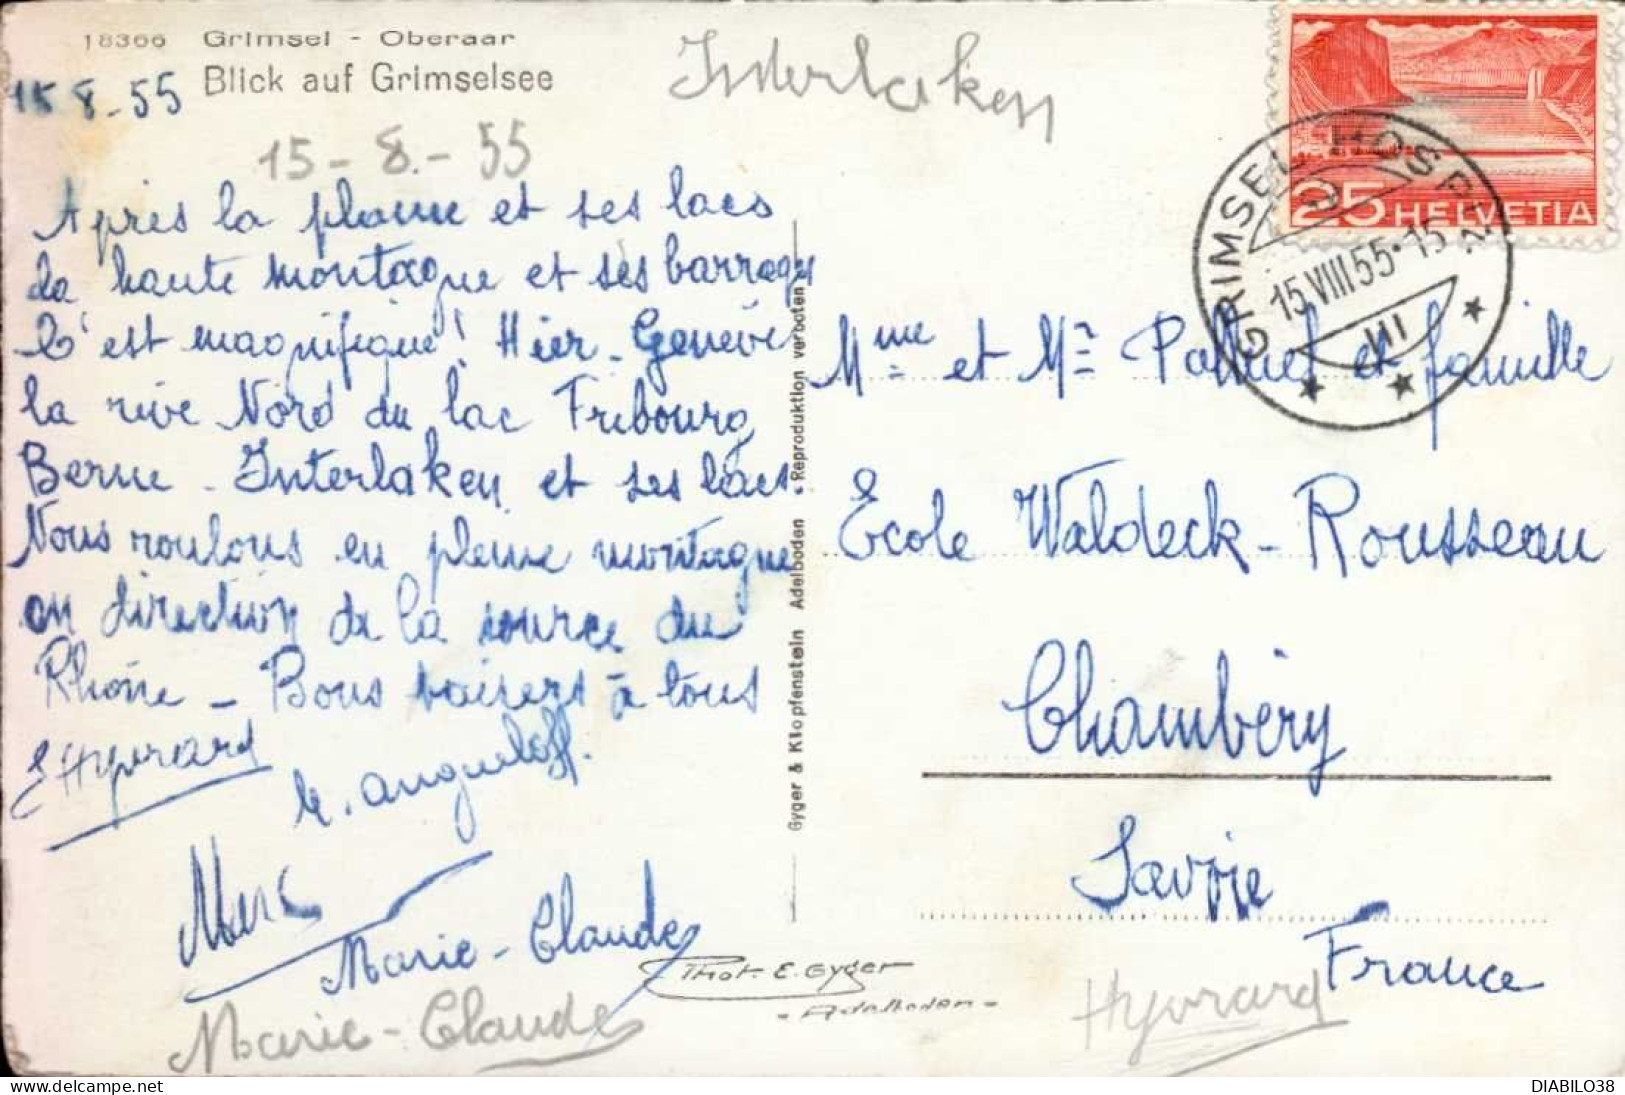 18366 Grimsel - Oberaar
Blick auf Grimselsee
15 8-55
Interlaken
15-8.-55
Après la plaine et ses lacs
la haute montagne et ses barrages
C'est magnifique! Hier - Genève
la rive Nord du lac Fribourg
Berne - Interlaken et ses lacs.
Nous roulons en pleine montagne
en direction de la source du
Rhône - Bons baisers à tous
Marc
Marie-Claude
Marie-Claude
Gyger & Klopfenstein Adelboden • Reproduktion verboten
Phot. E. Gyger
- Adelboden -
25 HELVETIA
GRIMSEL HOSPIZ
15.VIII.55·15
Mme et Mr et famille
Ecole Waldeck-Rousseau
Chambéry
Savoie
France
DIABILO38